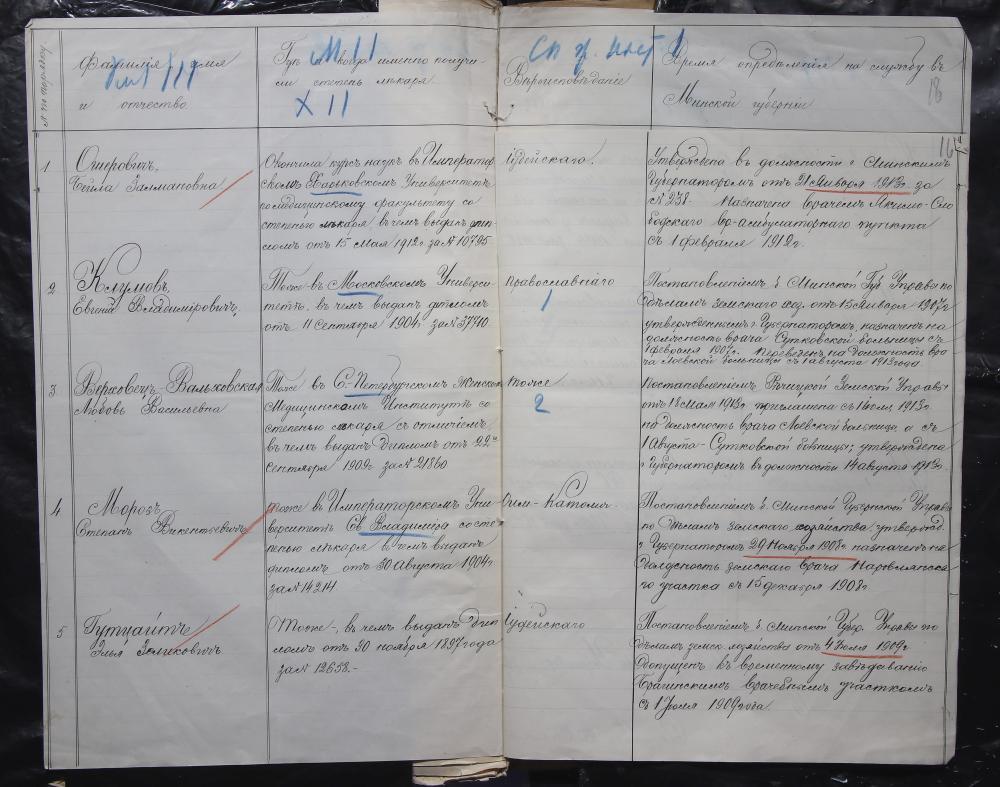 Фамилія, имя
и отчество
Гдѣ и когда именно получи-
ли степень лѣкаря
Вѣроисповѣданіе
Время опредѣленія на службу въ
Минской губерніи
XII
18
1
Ошеровичъ,
Бейла Залмановна
Окончила курсъ наукъ въ Император-
скомъ Харьковскомъ Университетѣ
по медицинскому факультету со
степенью лѣкаря въ чемъ выданъ дип-
ломъ отъ 15 Мая 1912г за № 10795
Іудейскаго.
Утверждена въ должности г. Минскимъ
Губернаторомъ отъ 21 Января 1913г. за
№ 238. Назначена врачемъ Якимо-Сло-
бодскаго вр-амбулаторнаго пункта
съ 1 февраля 1912г.
2
Клумовъ,
Евгеній Владиміровичъ,
Тоже въ Московскомъ Универси-
тетѣ, въ чемъ выданъ дипломъ
отъ 11 Сентября 1904г. за № 37710
Православнаго
1
Постановленіемъ б. Минской Губ. Управы по
дѣламъ земскаго хоз. отъ 15 Января 1907г
утвержденнымъ г. Губернаторомъ, назначенъ на
должность врача Сутковской больницы съ
1 февраля 1907г. Переведенъ на должность вра-
ча Лоевской больницы съ 1 августа 1913 года
3
Вальховская,
Любовь Васильевна
Тоже въ С.-Петербургскомъ Женскомъ
Медицинскомъ Институтѣ со
степенью лѣкаря съ отличіемъ,
въ чемъ выданъ дипломъ отъ 22
сентября 1909г за № 21860
тоже
2
Постановленіемъ Рѣчицкой Земской Управы
отъ 18 Мая 1913г. приглашена съ 1 Іюля 1913г
на должность врача Лоевской больницы а съ
1 Августа - Сутковской больницы; утверждена
г. Губернаторомъ въ должности 14 августа 1913г.
4
Морозъ,
Степанъ Викентьевичъ
тоже въ Императорскомъ Уни-
верситетѣ Св. Владиміра со сте-
пенью лѣкаря, въ чемъ выданъ
дипломъ отъ 30 Августа 1904г
за № 14214
Рим-Катол.
Постановленіемъ б. Минской Губернской Управы
по дѣламъ земскаго хозяйства, утвержд.
г. Губернаторомъ 29 Ноября 1908г. назначенъ на
должность земскаго врача Наровлянска-
го участка съ 15 декабря 1908г.
5
Гутцайтъ
Илья
Тоже-, въ чемъ выданъ дип-
ломъ отъ 30 ноября 1897 года
за № 12658.-
Іудейскаго
Постановленіемъ б. Минской Губер. Управы по
дѣламъ земск. хозяйства отъ 4 Іюля 1909г
допущенъ къ временному завѣдыванію
Брагинскимъ врачебнымъ участкомъ
съ 1 Іюля 1909 года.